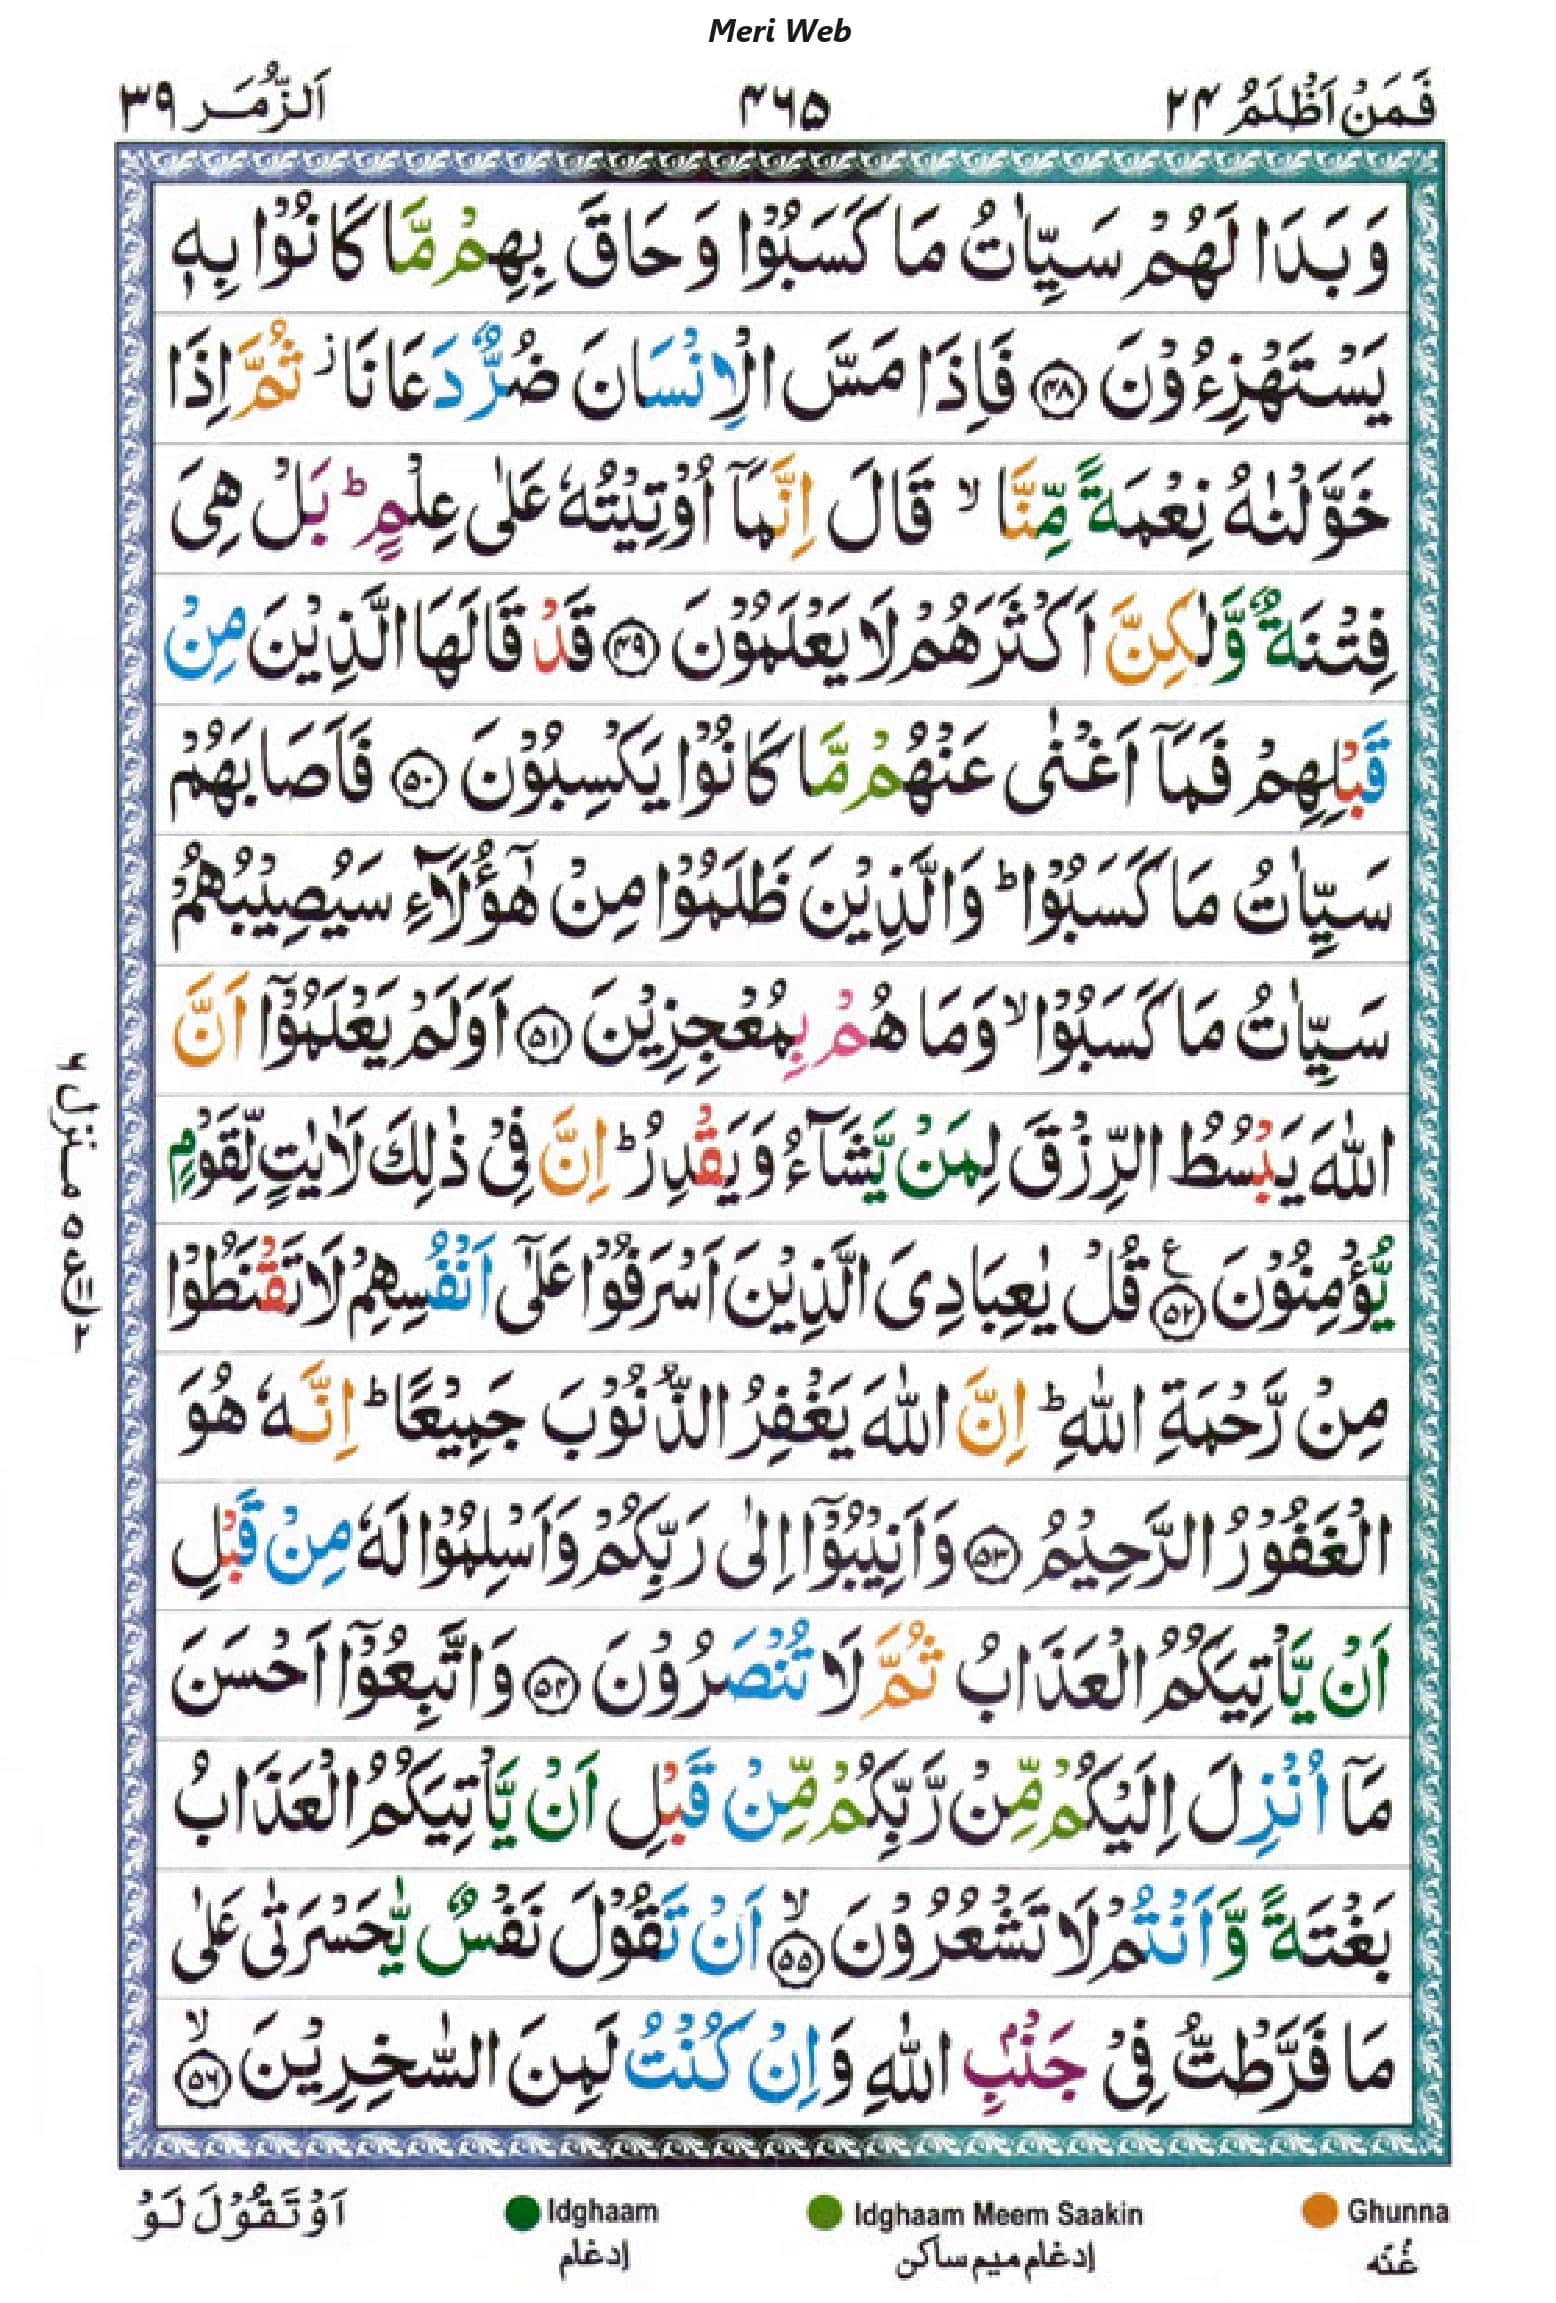 Meri Web
فَمَنْ اَظْلَمُ ۲۴
۴۶۵
اَلزُّمَر ۳۹
وَبَدَا لَهُمْ سَيِّاٰتُ مَا كَسَبُوْا وَحَاقَ بِهِمْ مَّا كَانُوْا بِهٖ
يَسْتَهْزِءُوْنَ ۴۸ فَاِذَا مَسَّ الْاِنْسَانَ ضُرٌّ دَعَانَا ز ثُمَّ اِذَا
خَوَّلْنٰهُ نِعْمَةً مِّنَّا ۙ قَالَ اِنَّمَاۤ اُوْتِيْتُهٗ عَلٰى عِلْمٍ ؕ بَلْ هِىَ
فِتْنَةٌ وَّلٰكِنَّ اَكْثَرَهُمْ لَا يَعْلَمُوْنَ ۴۹ قَدْ قَالَهَا الَّذِيْنَ مِنْ
قَبْلِهِمْ فَمَاۤ اَغْنٰى عَنْهُمْ مَّا كَانُوْا يَكْسِبُوْنَ ۵۰ فَاَصَابَهُمْ
سَيِّاٰتُ مَا كَسَبُوْا ؕ وَالَّذِيْنَ ظَلَمُوْا مِنْ هٰۤؤُلَاۤءِ سَيُصِيْبُهُمْ
سَيِّاٰتُ مَا كَسَبُوْا ۙ وَمَا هُمْ بِمُعْجِزِيْنَ ۵۱ اَوَلَمْ يَعْلَمُوْۤا اَنَّ
اللّٰهَ يَبْسُطُ الرِّزْقَ لِمَنْ يَّشَآءُ وَيَقْدِرُ ؕ اِنَّ فِىْ ذٰلِكَ لَاٰيٰتٍ لِّقَوْمٍ
يُّؤْمِنُوْنَ ۵۲ ع قُلْ يٰعِبَادِىَ الَّذِيْنَ اَسْرَفُوْا عَلٰٓى اَنْفُسِهِمْ لَا تَقْنَطُوْا
مِنْ رَّحْمَةِ اللّٰهِ ؕ اِنَّ اللّٰهَ يَغْفِرُ الذُّنُوْبَ جَمِيْعًا ؕ اِنَّهٗ هُوَ
الْغَفُوْرُ الرَّحِيْمُ ۵۳ وَاَنِيْبُوْۤا اِلٰى رَبِّكُمْ وَاَسْلِمُوْا لَهٗ مِنْ قَبْلِ
اَنْ يَّاْتِيَكُمُ الْعَذَابُ ثُمَّ لَا تُنْصَرُوْنَ ۵۴ وَاتَّبِعُوْۤا اَحْسَنَ
مَاۤ اُنْزِلَ اِلَيْكُمْ مِّنْ رَّبِّكُمْ مِّنْ قَبْلِ اَنْ يَّاْتِيَكُمُ الْعَذَابُ
بَغْتَةً وَّاَنْتُمْ لَا تَشْعُرُوْنَ ۵۵ ۙ اَنْ تَقُوْلَ نَفْسٌ يّٰحَسْرَتٰى عَلٰى
مَا فَرَّطْتُّ فِىْ جَنْۢبِ اللّٰهِ وَاِنْ كُنْتُ لَمِنَ السّٰخِرِيْنَ ۵۶ ۙ
منزل ۶
اَوْ تَقُوْلَ لَوْ
Idghaam
إدغام
Idghaam Meem Saakin
إدغام ميم ساكن
Ghunna
غُنّه